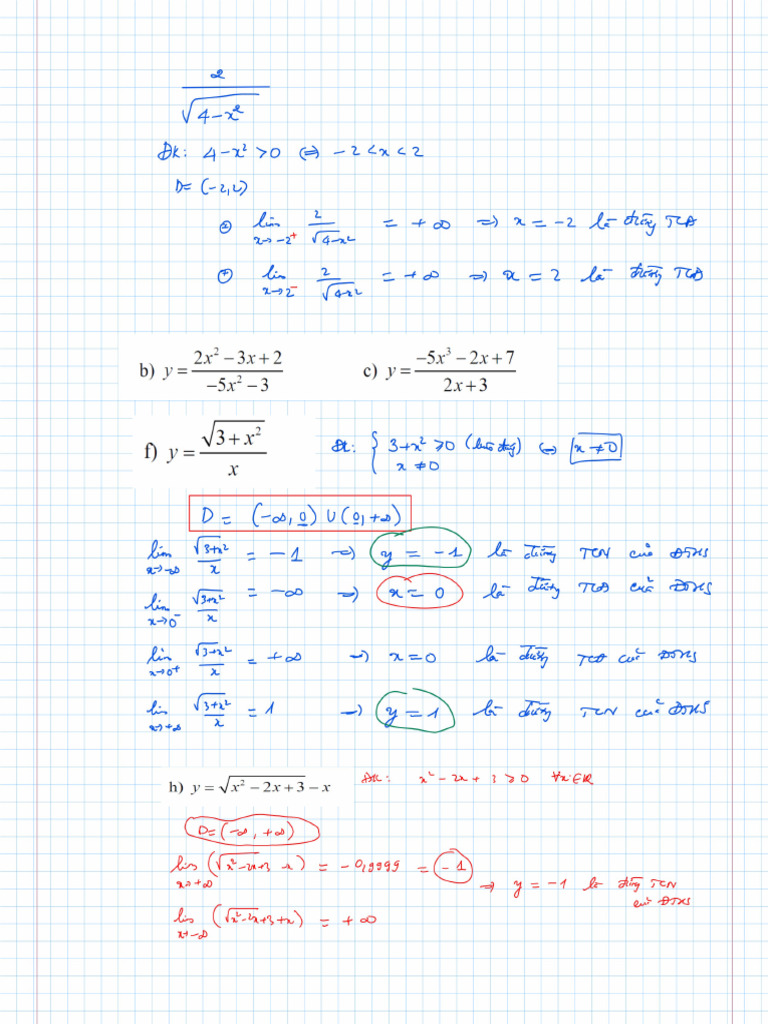 2
√(4-x²)
ĐK: 4-x² > 0 ⇔ -2 < x < 2
D = (-2,2)
⊕ lim x→-2⁺ 2/√(4-x²) = +∞ ⇒ x = -2 là đường TCĐ
⊕ lim x→2⁻ 2/√(4-x²) = +∞ ⇒ x = 2 là đường TCĐ
b) y = (2x² - 3x + 2)/(-5x² - 3) c) y = (-5x³ - 2x + 7)/(2x + 3)
f) y = √(3 + x²)/x ĐK: { 3+x² ≥ 0 (luôn đúng) ⇔ x ≠ 0
x ≠ 0
D = (-∞, 0) ∪ (0, +∞)
lim x→-∞ √(3+x²)/x = -1 ⇒ y = -1 là đường TCN của ĐTHS
lim x→0⁻ √(3+x²)/x = -∞ ⇒ x = 0 là đường TCĐ của ĐTHS
lim x→0⁺ √(3+x²)/x = +∞ ⇒ x = 0 là đường TCĐ của ĐTHS
lim x→+∞ √(3+x²)/x = 1 ⇒ y = 1 là đường TCN của ĐTHS
h) y = √(x² - 2x + 3) - x ĐK: x² - 2x + 3 ≥ 0 ∀x∈R
D = (-∞, +∞)
lim x→+∞ (√(x²-2x+3) - x) = -0,9999 = -1
⇒ y = -1 là đường TCN
của ĐTHS
lim x→-∞ (√(x²-2x+3) + x) = +∞